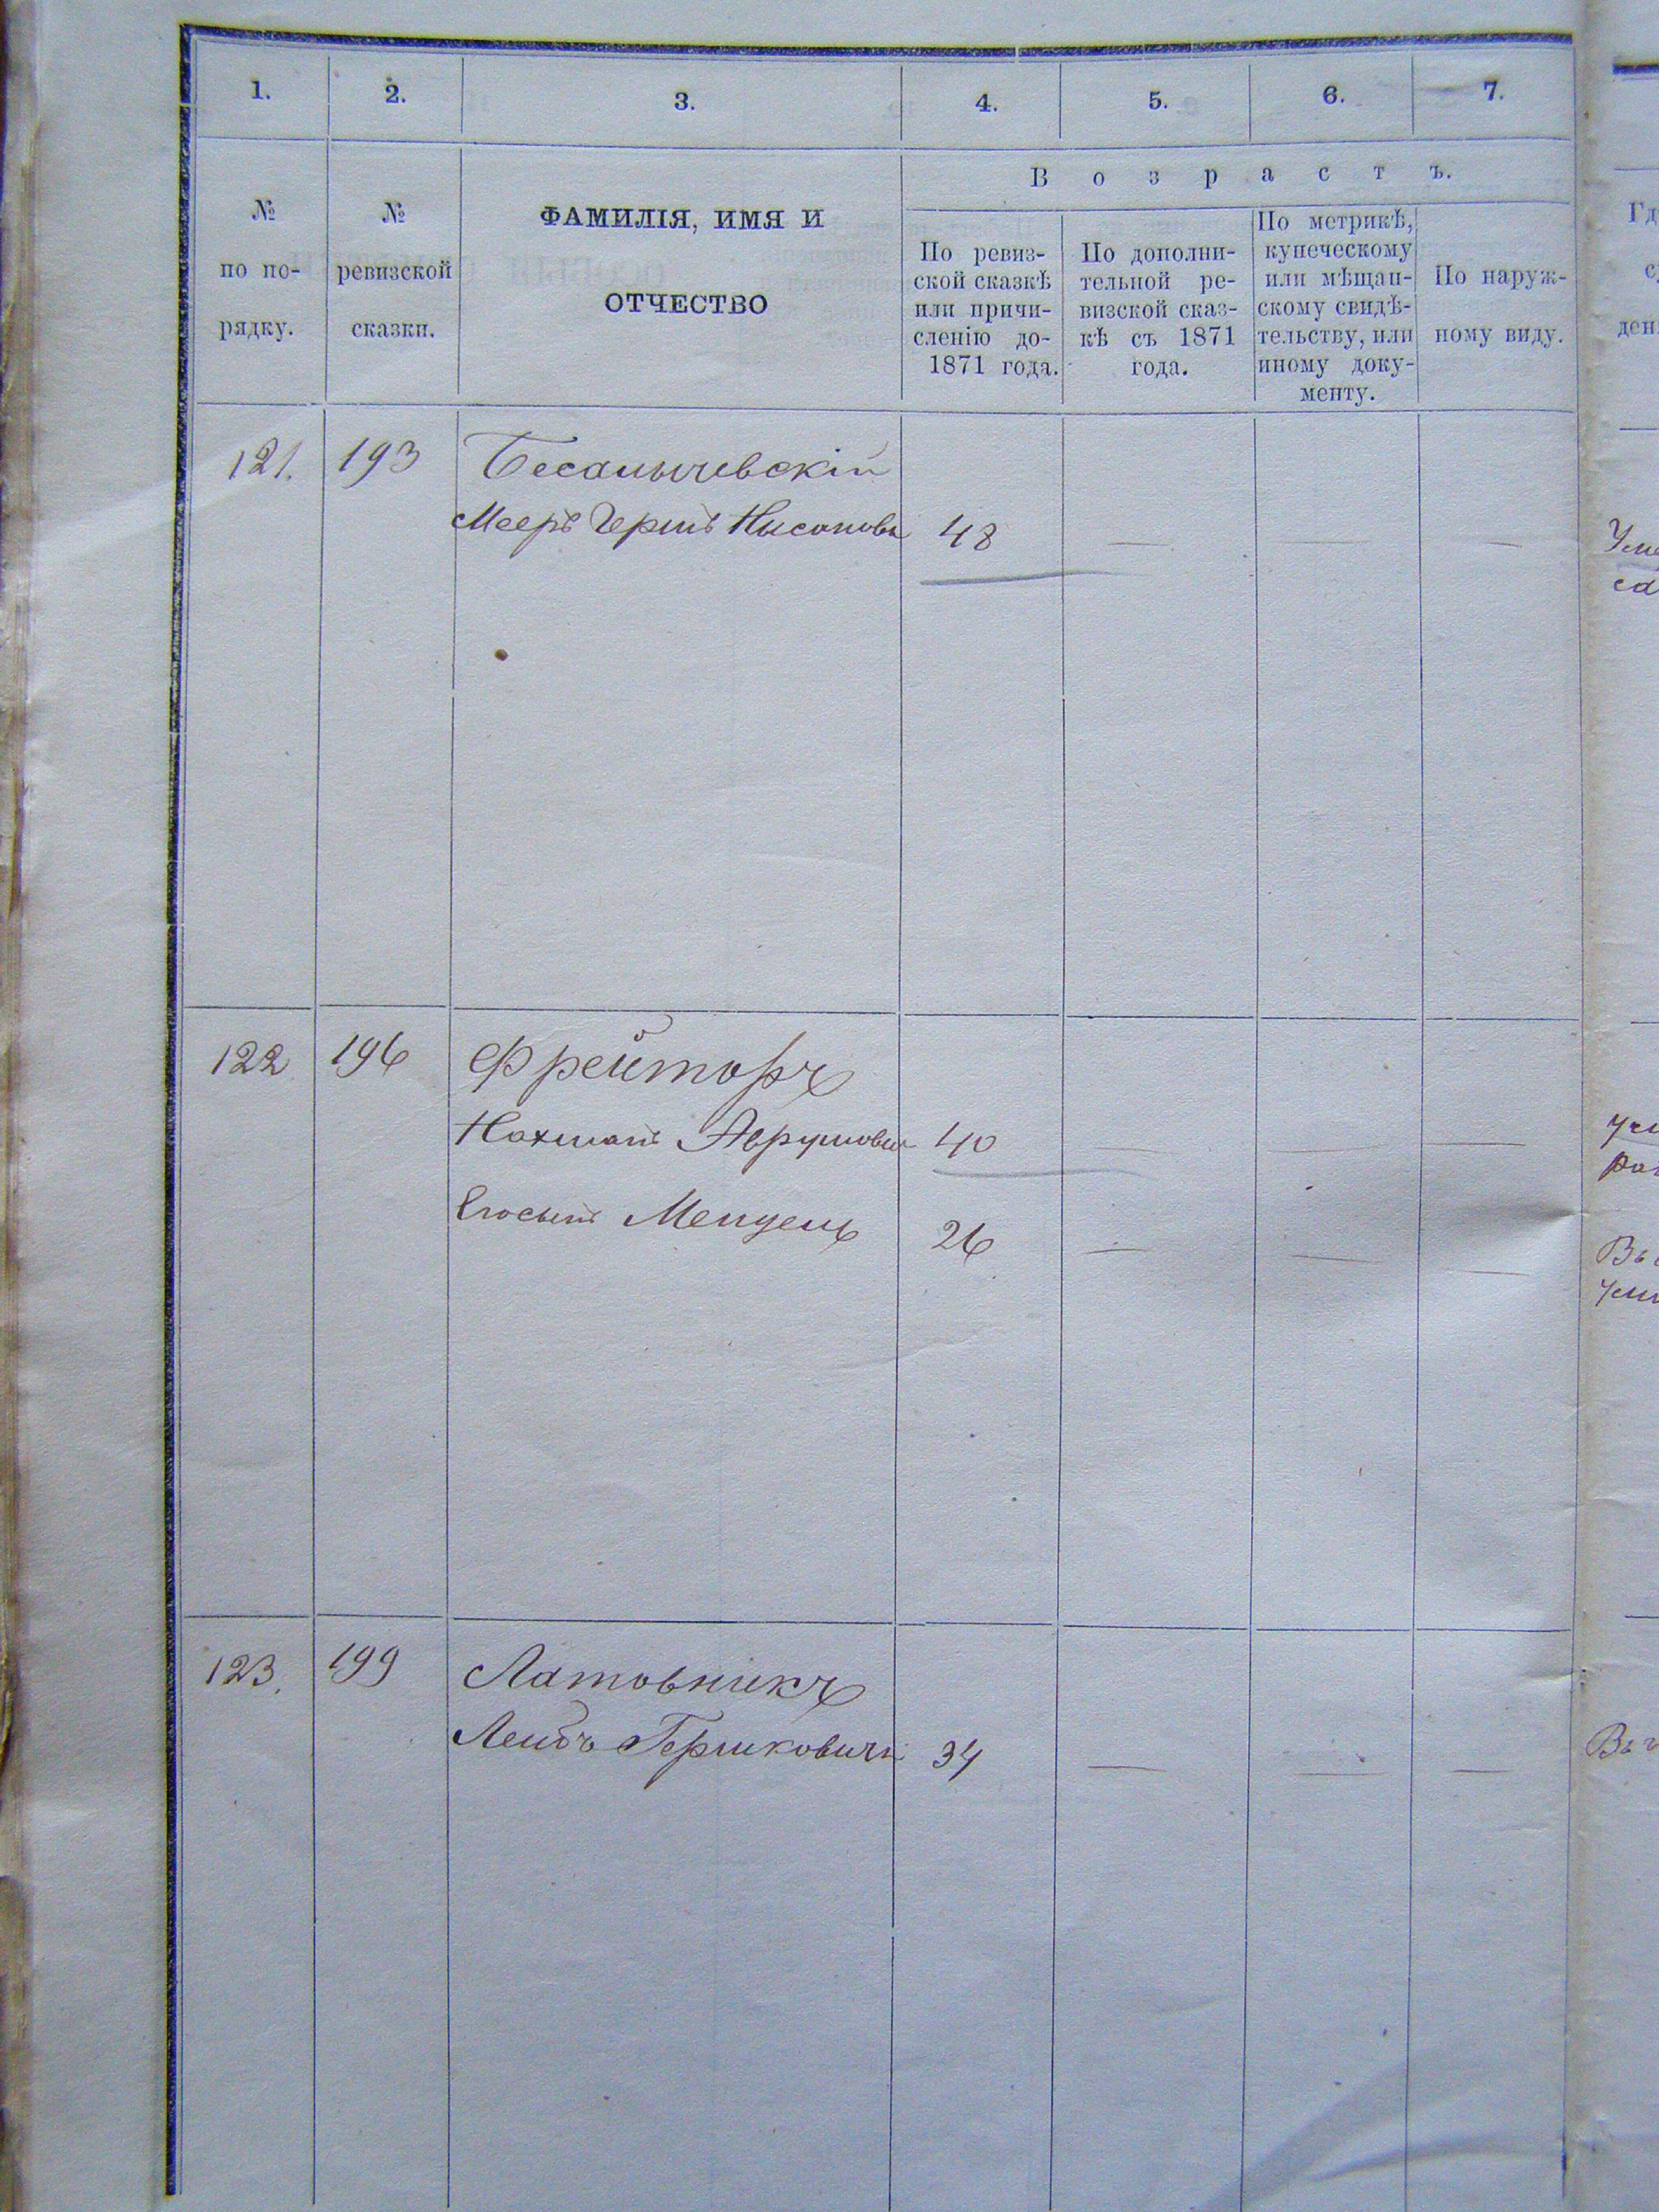 1. 2. 3. 4. 5. 6. 7.
№ по по-рядку.
№ ревизской сказки.
ФАМИЛІЯ, ИМЯ И
ОТЧЕСТВО
Возрастъ.
По ревиз-
ской сказкѣ
или причи-
сленію до-
1871 года.
По дополни-
тельной ре-
визской сказ-
кѣ съ 1871
года.
По метрикѣ,
купеческому
или мѣщан-
скому свидѣ-
тельству, или
иному доку-
менту.
По наруж-
ному виду.
121. 193
Мееръ Гершъ Нисоновъ 48 — — —
122 196 Фрейторъ
Нахманъ Аврумовъ 40 — — —
Мендель 26 — — —
123. 199 Латовникъ
Лейбъ Гершковичъ 34 — — —